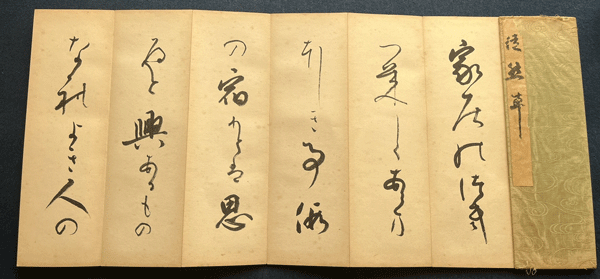 徒然草
家居のつき
つきしくあらま
ほしきこそ仮
の宿りとは思
へと興あるもの
なれよき人の